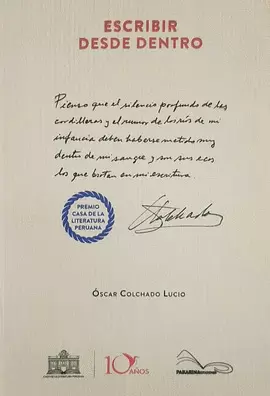 ESCRIBIR
DESDE DENTRO
Pienso que el silencio profundo de las
cordilleras y el rumor de los ríos de mi
infancia deben haberse metido muy
dentro de mi sangre y son sus ecos
los que brotan en mi escritura.
PREMIO
CASA DE LA
LITERATURA
PERUANA
OColchado
ÓSCAR COLCHADO LUCIO
10 AÑOS
PAKARINA